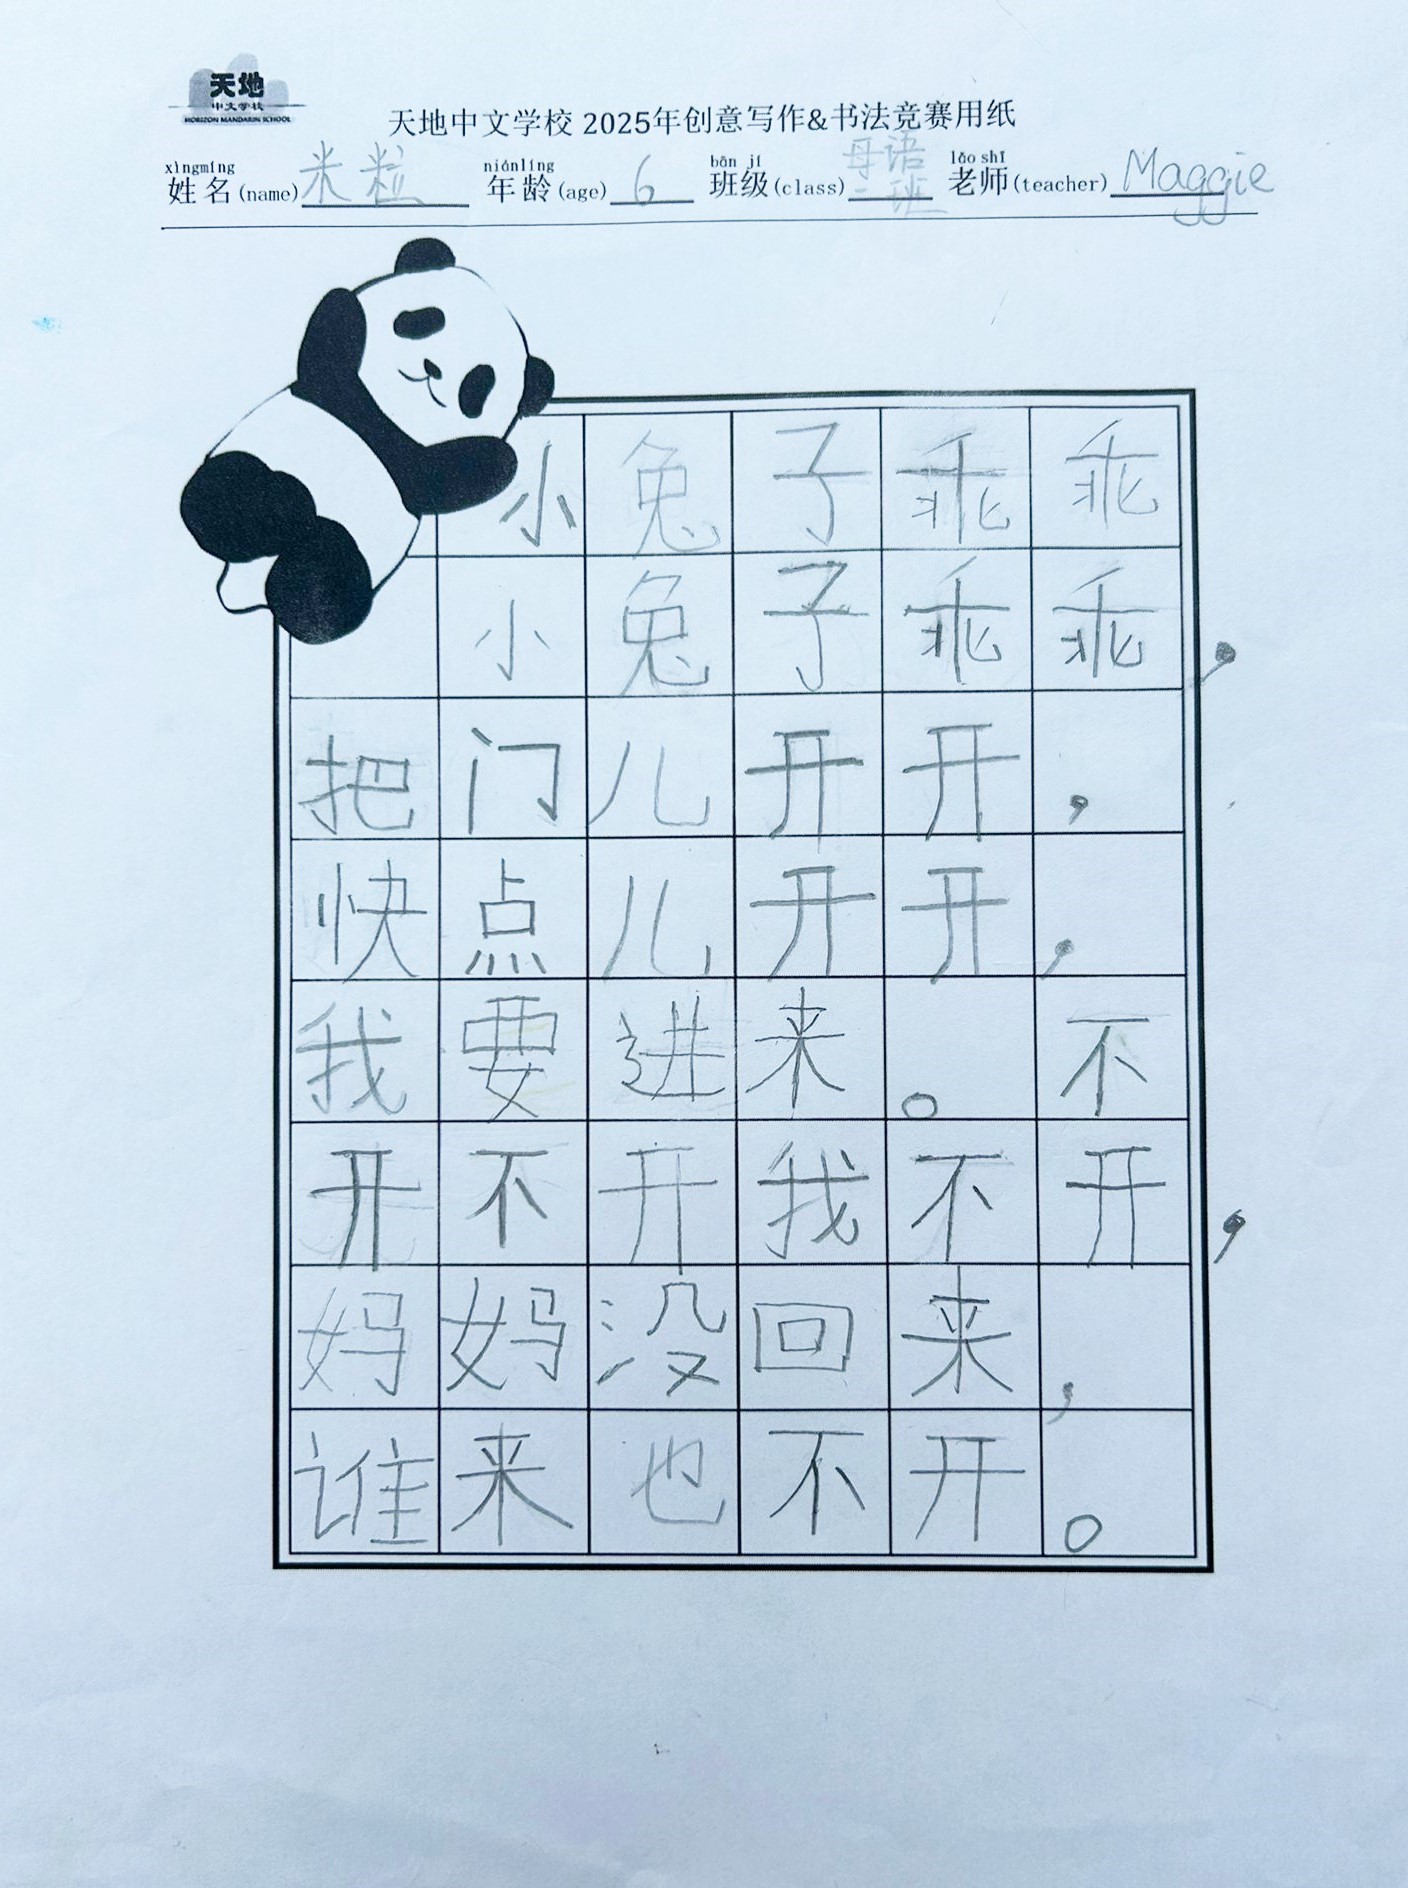 天地
中文学校
HORIZON MANDARIN SCHOOL
天地中文学校 2025年创意写作&书法竞赛用纸
xìngmíng niánlíng bān jí lǎo shī
姓名(name)米粒 年龄(age)6 班级(class)母语二班 老师(teacher)Maggie
小兔子乖乖
小兔子乖乖，
把门儿开开，
快点儿开开，
我要进来。不
开不开我不开，
妈妈没回来，
谁来也不开。